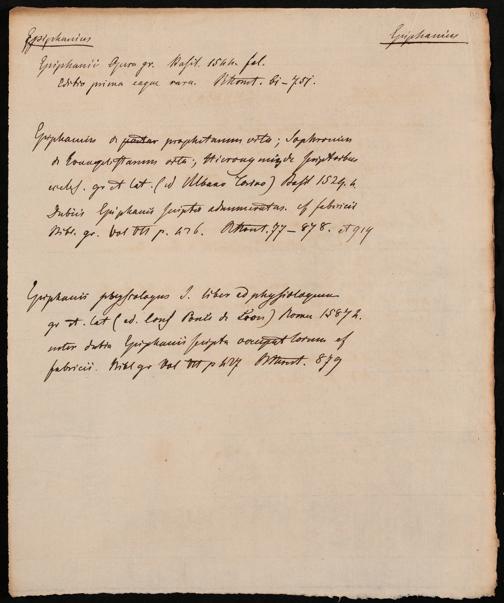 Epiphanius
Epiphanius
Epiphanii Opera gr. Basil. 1544. fol.
Editio prima eaque rara.
Epiphanius de prophetarum vita; Sophronius
de Evangelistarum vita; Hieronymus de scriptoribus
eccles. gr et lat. (ed Albano Torino) Basil 1529. 4.
Dubiis Epiphanii scriptis adnumeratus. cf fabricii
Bibl. gr. Vol VII p. 426. 77–878. et 919
Epiphanii physiologus S. liber ad physiologum
gr et lat (ed. Consf Ponce de Leon) Romae 1587 4.
inter dubia Epiphanii scripta occupat locum cf
fabricii. Bibl gr Vol VII p 427 879